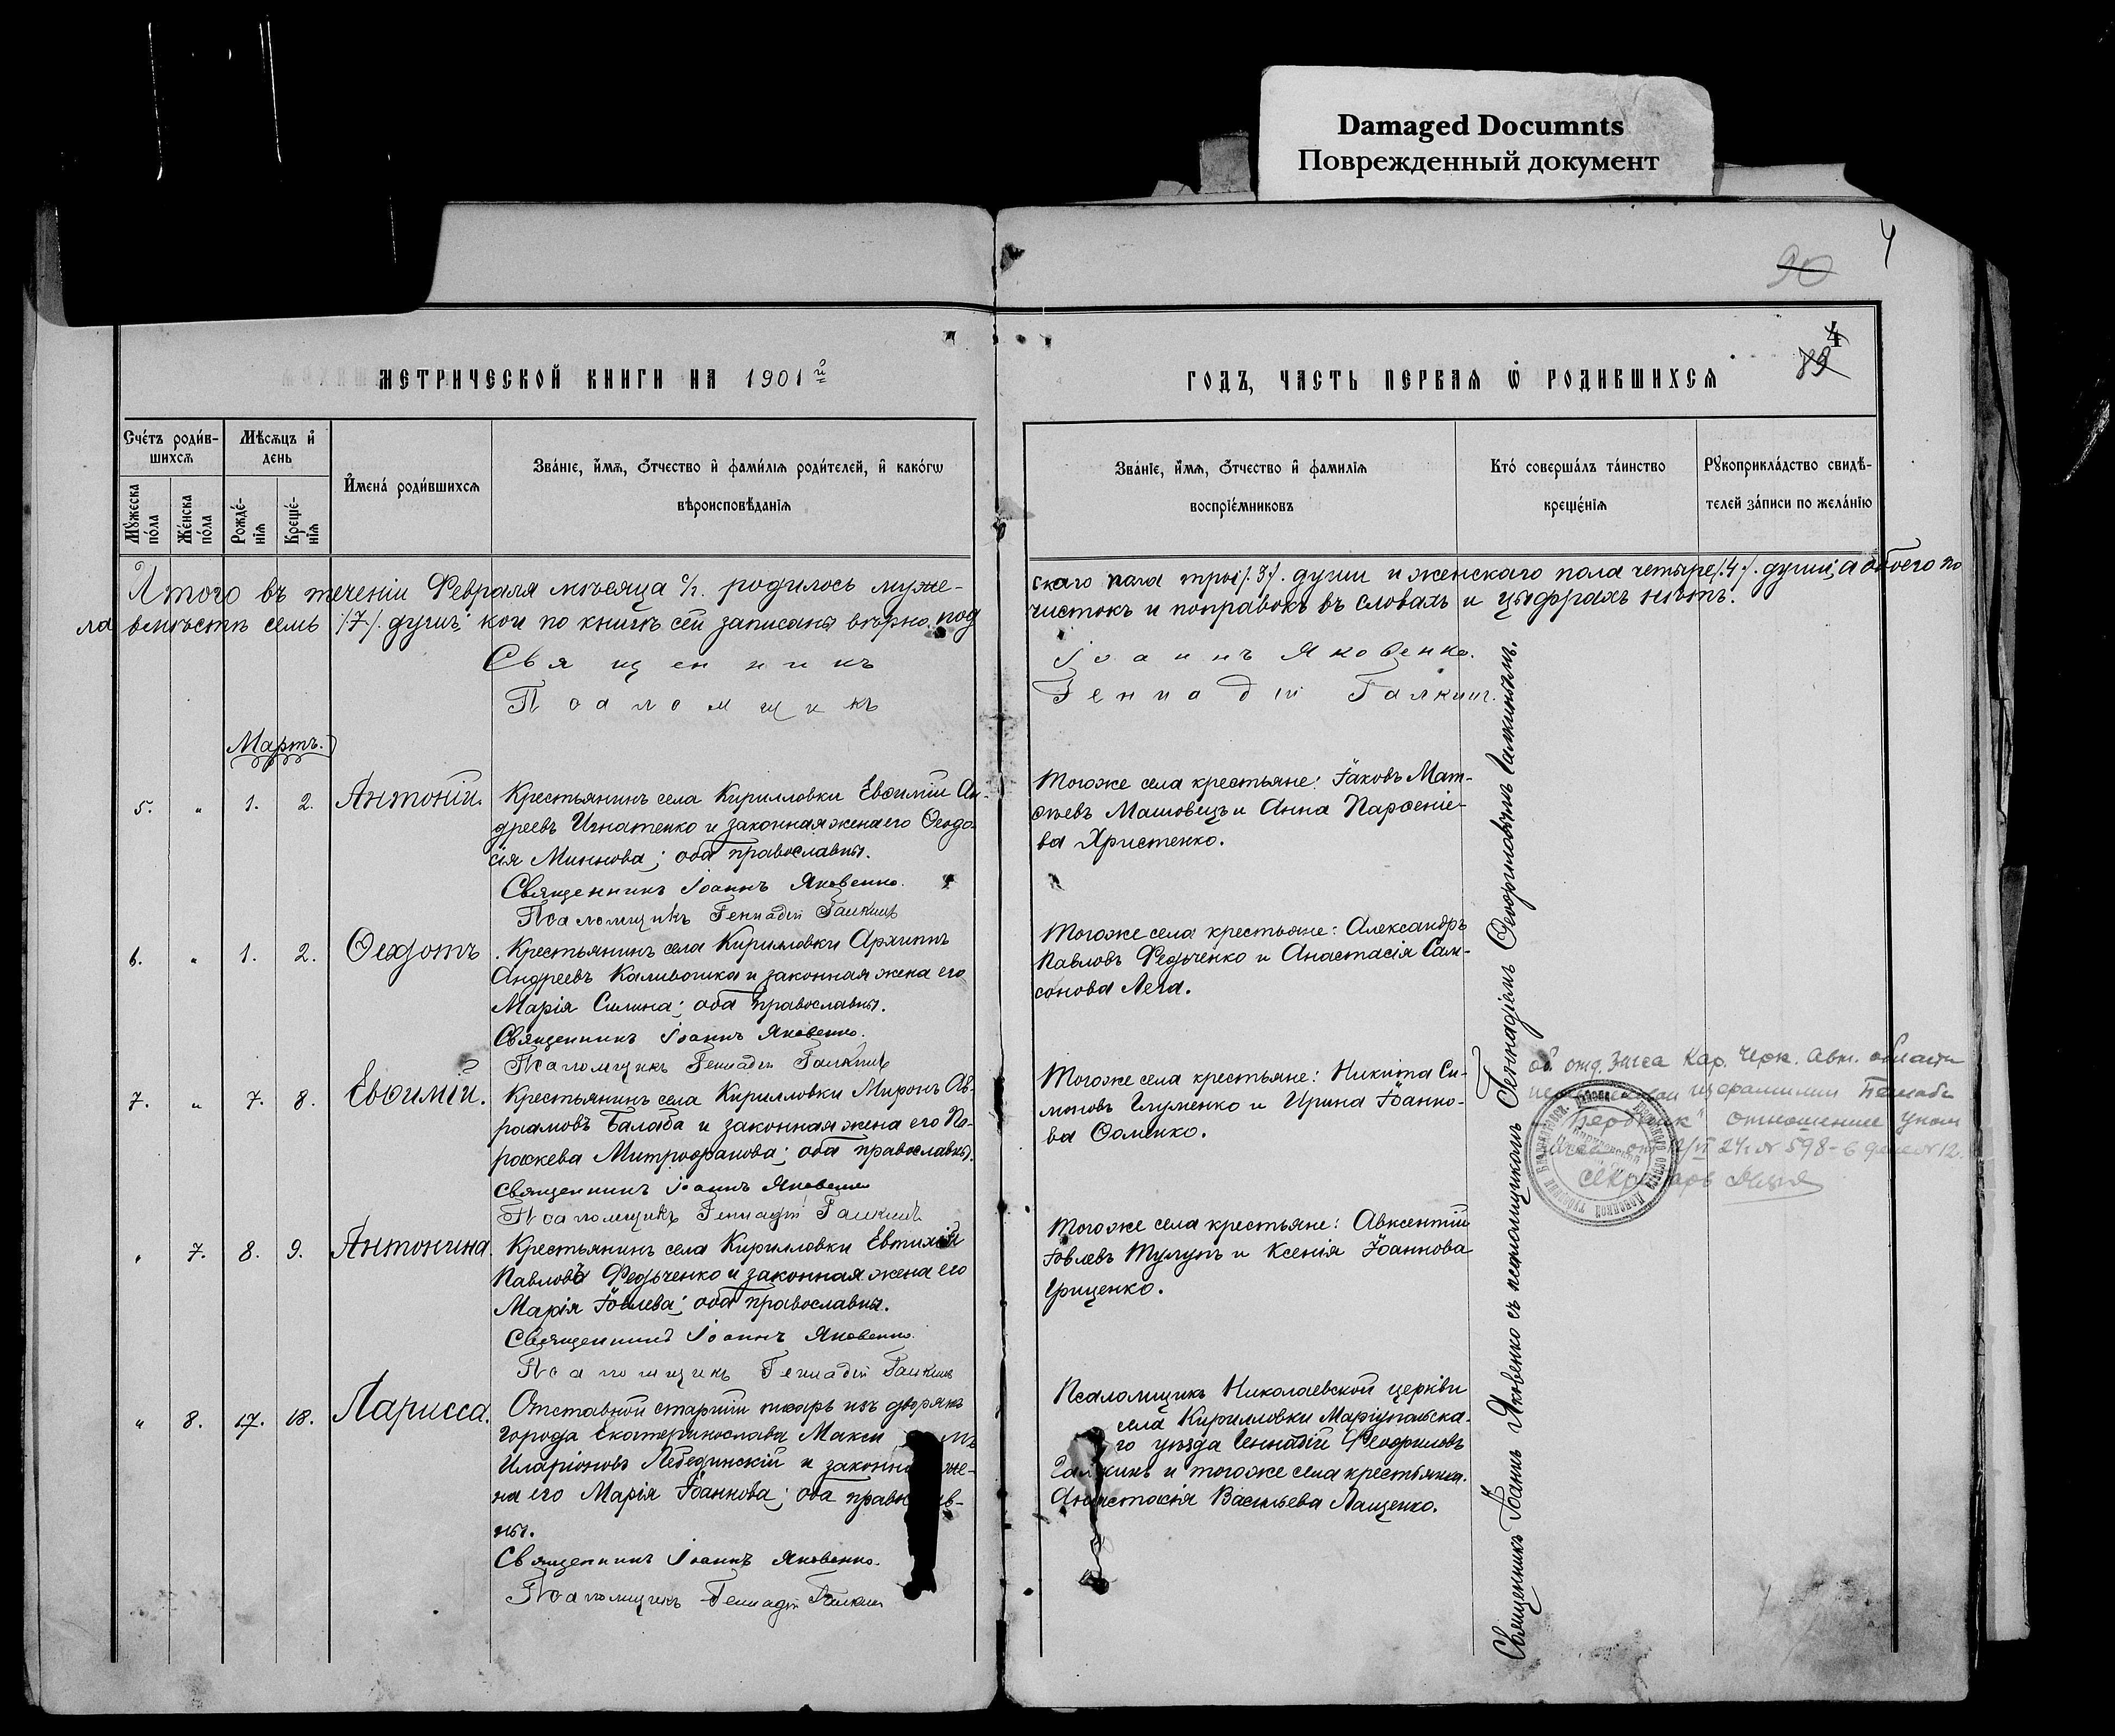 Damaged Documnts
Поврежденный документ
4
90
4
89
МЕТРИЧЕСКОЙ КНИГИ НА 1901й
ГОДЪ, ЧАСТЬ ПЕРВАЯ Ѡ РОДИВШИХСЯ
Счетъ родив-
шихся
Мѣсяцъ и
день
Мужеска
пола
Женска
пола
Рожде-
нія
Креще-
нія
Имена родившихся
Званіе, имя, отчество и фамилія родителей, и какогѡ
вѣроисповѣданія
Званіе, имя, отчество и фамилія
воспріемниковъ
Кто совершалъ таинство
крещенія
Рукоприкладство свидѣ-
телей записи по желанію
Итого въ теченіи Февраля мѣсяца с/г. родилось муже-
скаго пола три /.3/. души и женскаго пола четыре /.4/. души; а обоего по
ла вмѣстѣ семь /.7/. душъ; кои по книгѣ сей записаны вѣрно. под
чистокъ и поправокъ въ словахъ и цыфрахъ нѣтъ.
Священникъ Іоаннъ Яковенко.
Псаломщикъ Геннадій Галкинъ.
Мартъ.
5. " 1. 2. Антоній.
Крестьянинъ села Кирилловки Евѳимій Ан-
дреевъ Игнатенко и законная жена его Ѳеодо-
сія Миннова; оба православны.
Священникъ Іоаннъ Яковенко.
Псаломщикъ Геннадій Галкинъ
Тогоже села крестьяне: Іаковъ Мат-
ѳеевъ Машовецъ и Анна Парѳеніе-
ва Христенко.
6. " 1. 2. Ѳеодотъ
Крестьянинъ села Кирилловки Архиппъ
Андреевъ Каливошка и законная жена его
Марія Силина; оба православны.
Священникъ Іоаннъ Яковенко.
Псаломщикъ Геннадій Галкинъ
Тогоже села крестьяне: Александръ
Павловъ Федьченко и Анастасія Сам-
сонова Лега.
7. " 7. 8. Евѳимій.
Крестьянинъ села Кирилловки Миронъ Ав-
раамовъ Балаба и законная жена его Па-
раскева Митрофанова; оба православны.
Священникъ Іоаннъ Яковенко
Псаломщикъ Геннадій Галкинъ
Тогоже села крестьяне: Никита Си-
моновъ Игуменко и Ирина Іоанно-
ва Ѳоменко.
" 7. 8. 9. Антонина.
Крестьянинъ села Кирилловки Евтихій
Павловъ Федьченко и законная жена его
Марія Іовлева; оба православны.
Священникъ Іоаннъ Яковенко.
Псаломщикъ Геннадій Галкинъ
Тогоже села крестьяне: Авксентій
Іовлевъ Тулупъ и Ксенія Іоаннова
Гриценко.
" 8. 17. 18. Ларисса.
Отставной старшій писарь изъ дворянъ
города Екатеринослава Макси мъ
Иларіоновъ Лебединскій и законна же-
на его Марія Іоаннова; оба право в-
ны.
Священникъ Іоаннъ Яковенко.
Псаломщикъ Геннадій Галкинъ
Псаломщикъ Николаевской церкви
села Кирилловки Маріупольска-
го уѣзда Геннадій Ѳеофиловъ
Галкинъ и тогоже села крестьянка
Анастасія Васильева Лащенко.
Священникъ Іоаннъ Яковенко съ псаломщикомъ Геннадіемъ Ѳеофиловымъ Галкинымъ.
отд. Загса Кар. Черк. Авт. области
отношение
24г N 598 - в деле N 12.
Секретарь